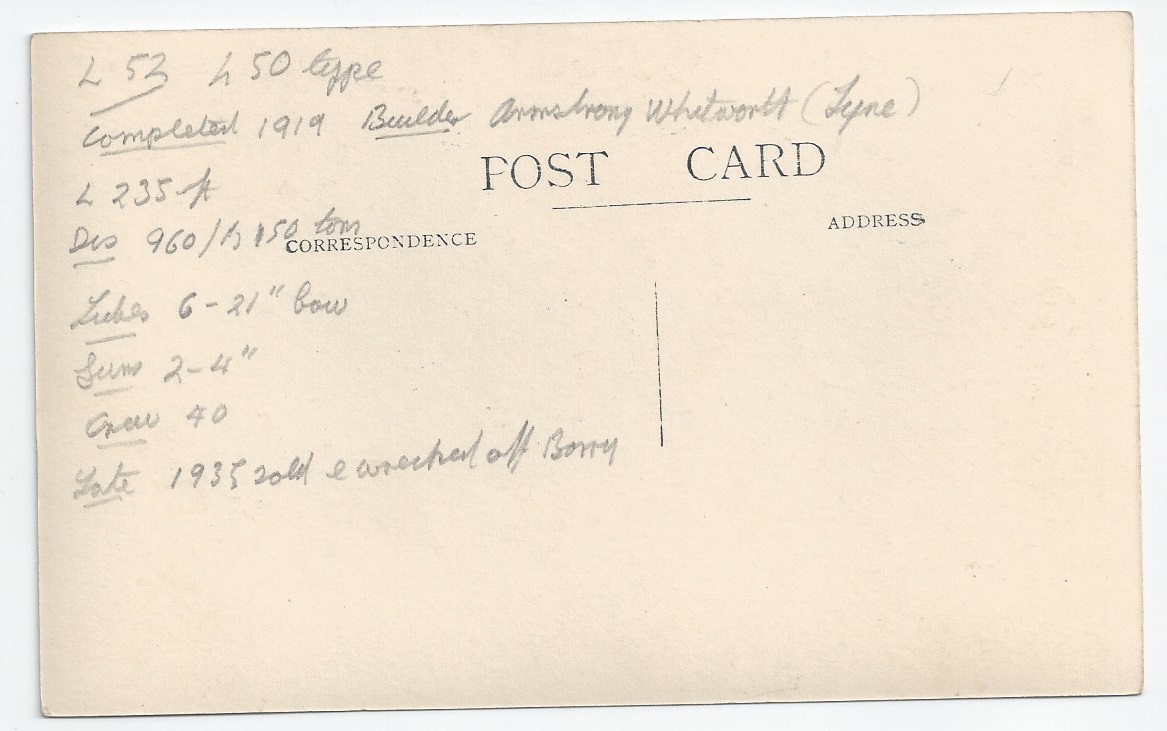 L 52 L 50 type
Completed 1919 Builder Armstrong Whitworth (Tyne)
POST CARD
L 235 ft
Dis 960/1150 tons
CORRESPONDENCE
ADDRESS
Tubes 6-21" bow
Guns 2-4"
Crew 40
Fate 1935 sold & wrecked off Barry